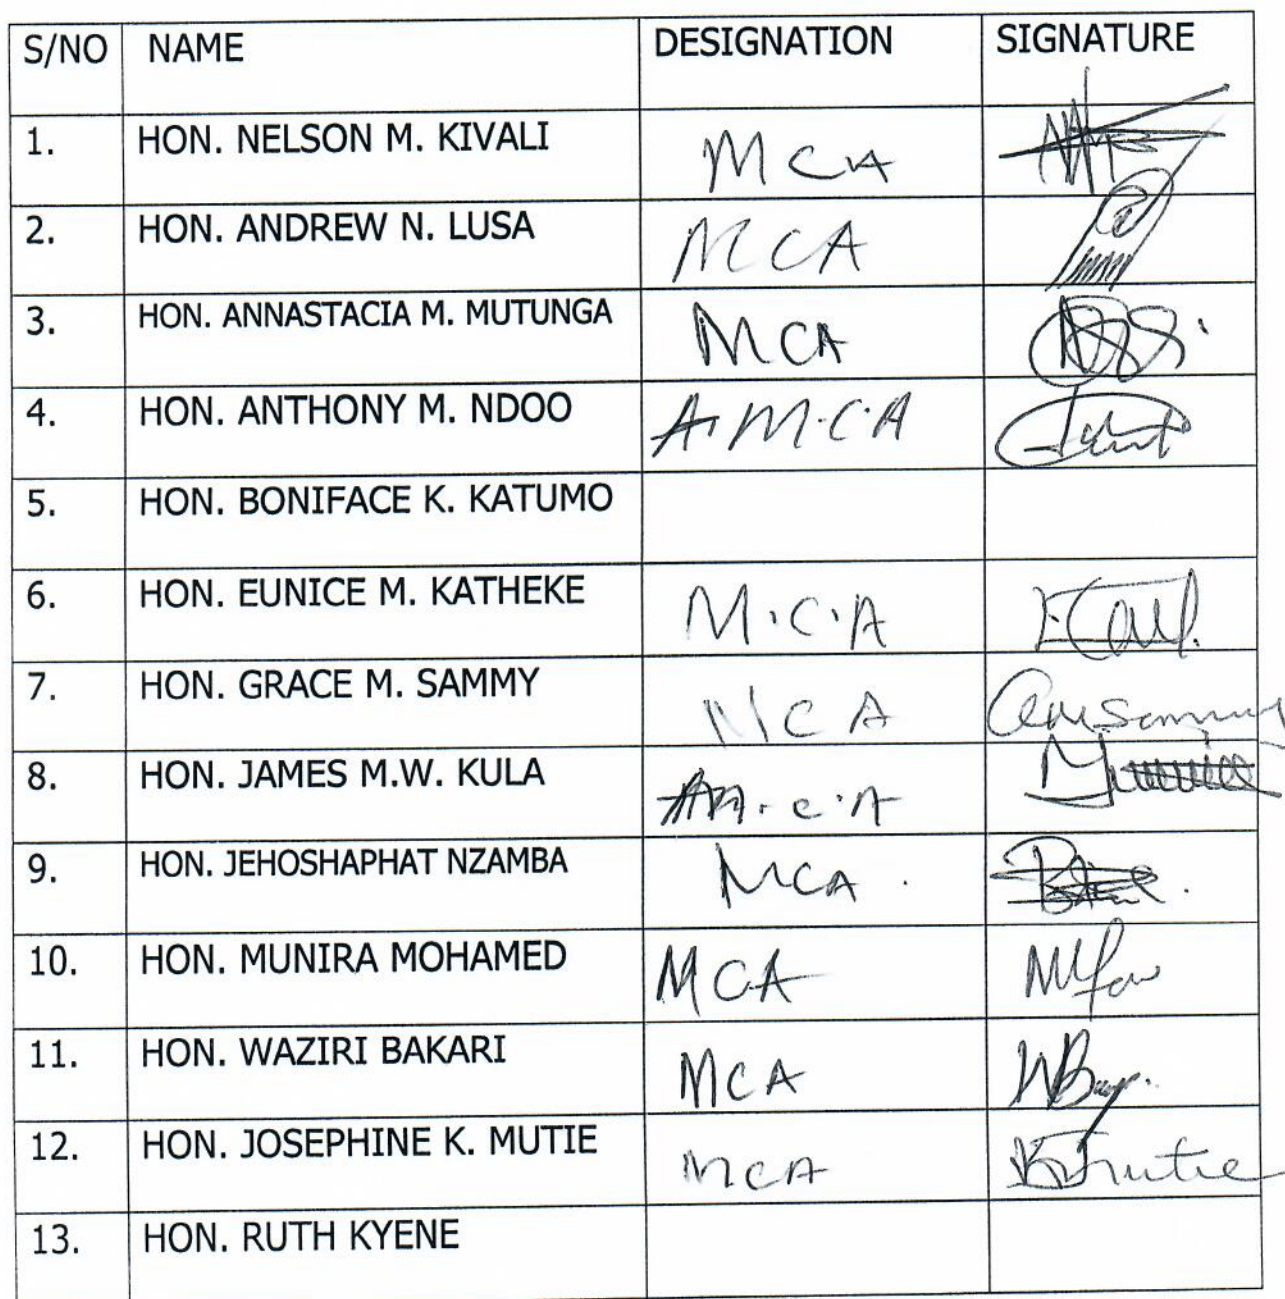 S/NO NAME DESIGNATION SIGNATURE
1. HON. NELSON M. KIVALI MCA
2. HON. ANDREW N. LUSA MCA
3. HON. ANNASTACIA M. MUTUNGA MCA
4. HON. ANTHONY M. NDOO M.C.A
5. HON. BONIFACE K. KATUMO
6. HON. EUNICE M. KATHEKE M.C.A
7. HON. GRACE M. SAMMY MCA
8. HON. JAMES M.W. KULA M.C.A
9. HON. JEHOSHAPHAT NZAMBA MCA.
10. HON. MUNIRA MOHAMED MCA
11. HON. WAZIRI BAKARI MCA
12. HON. JOSEPHINE K. MUTIE MCA
13. HON. RUTH KYENE